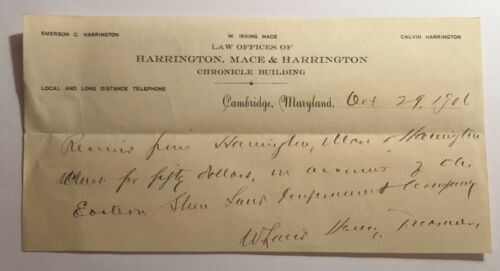 EMERSON C. HARRINGTON W. IRVING MACE CALVIN HARRINGTON
LAW OFFICES OF
HARRINGTON, MACE & HARRINGTON
CHRONICLE BUILDING
LOCAL AND LONG DISTANCE TELEPHONE
Cambridge, Maryland, Oct. 29, 1906
from Harrington, Mace & Harrington
for fifty dollars, on account of the
Eastern Shore Land Improvement Company
Treasurer